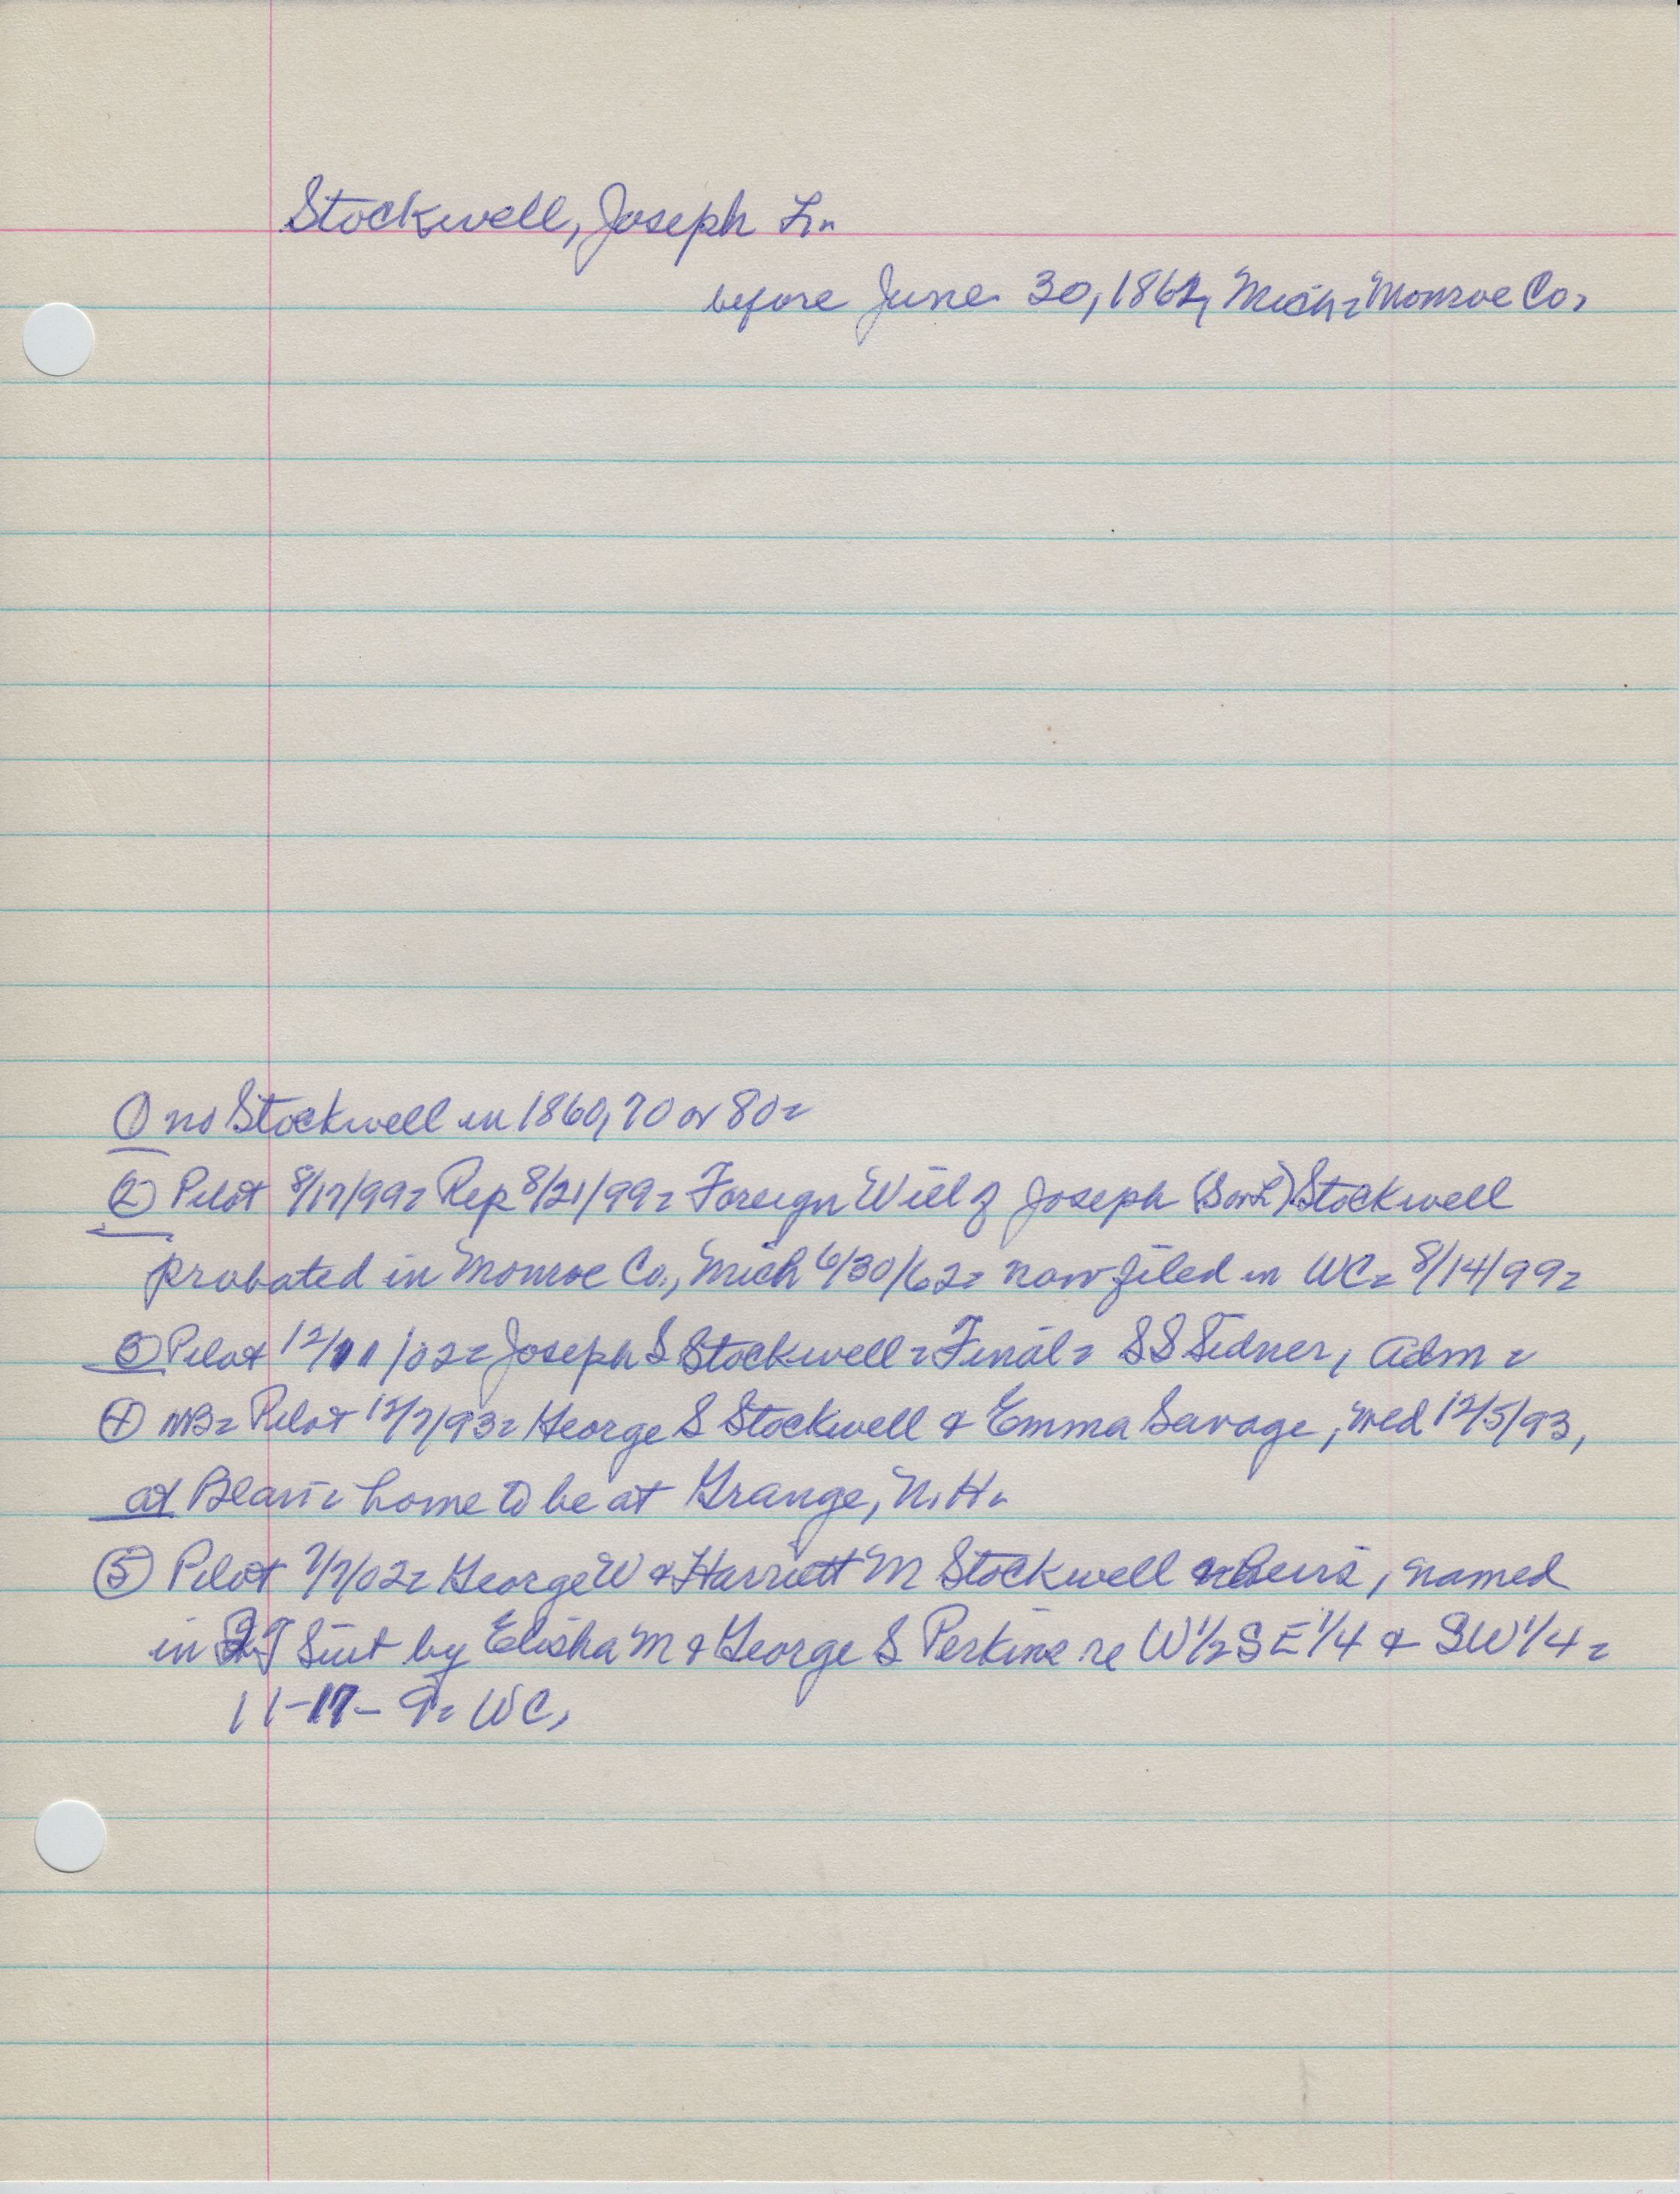 Stockwell, Joseph L=
before June 30, 1862, Mich= Monroe Co,
① no Stockwell in 1860, 70 or 80=
② Pilot 8/17/99= Rep 8/21/99= Foreign Will of Joseph (S or L) Stockwell
probated in Monroe Co., Mich 6/30/62= now filed in WC= 8/14/99=
③ Pilot 12/11/02= Joseph S Stockwell= Final= SS Sidner, Adm=
④ NB= Pilot 12/7/93= George S Stockwell & Emma Savage, Wed 12/5/93,
at Blair= home to be at Grange, N.H=
⑤ Pilot 7/7/02= George W & Harriett M Stockwell heirs, named
in QT Suit by Elisha M & George S Perkins re W 1/2 SE 1/4 & SW 1/4=
11-17-9= WC,